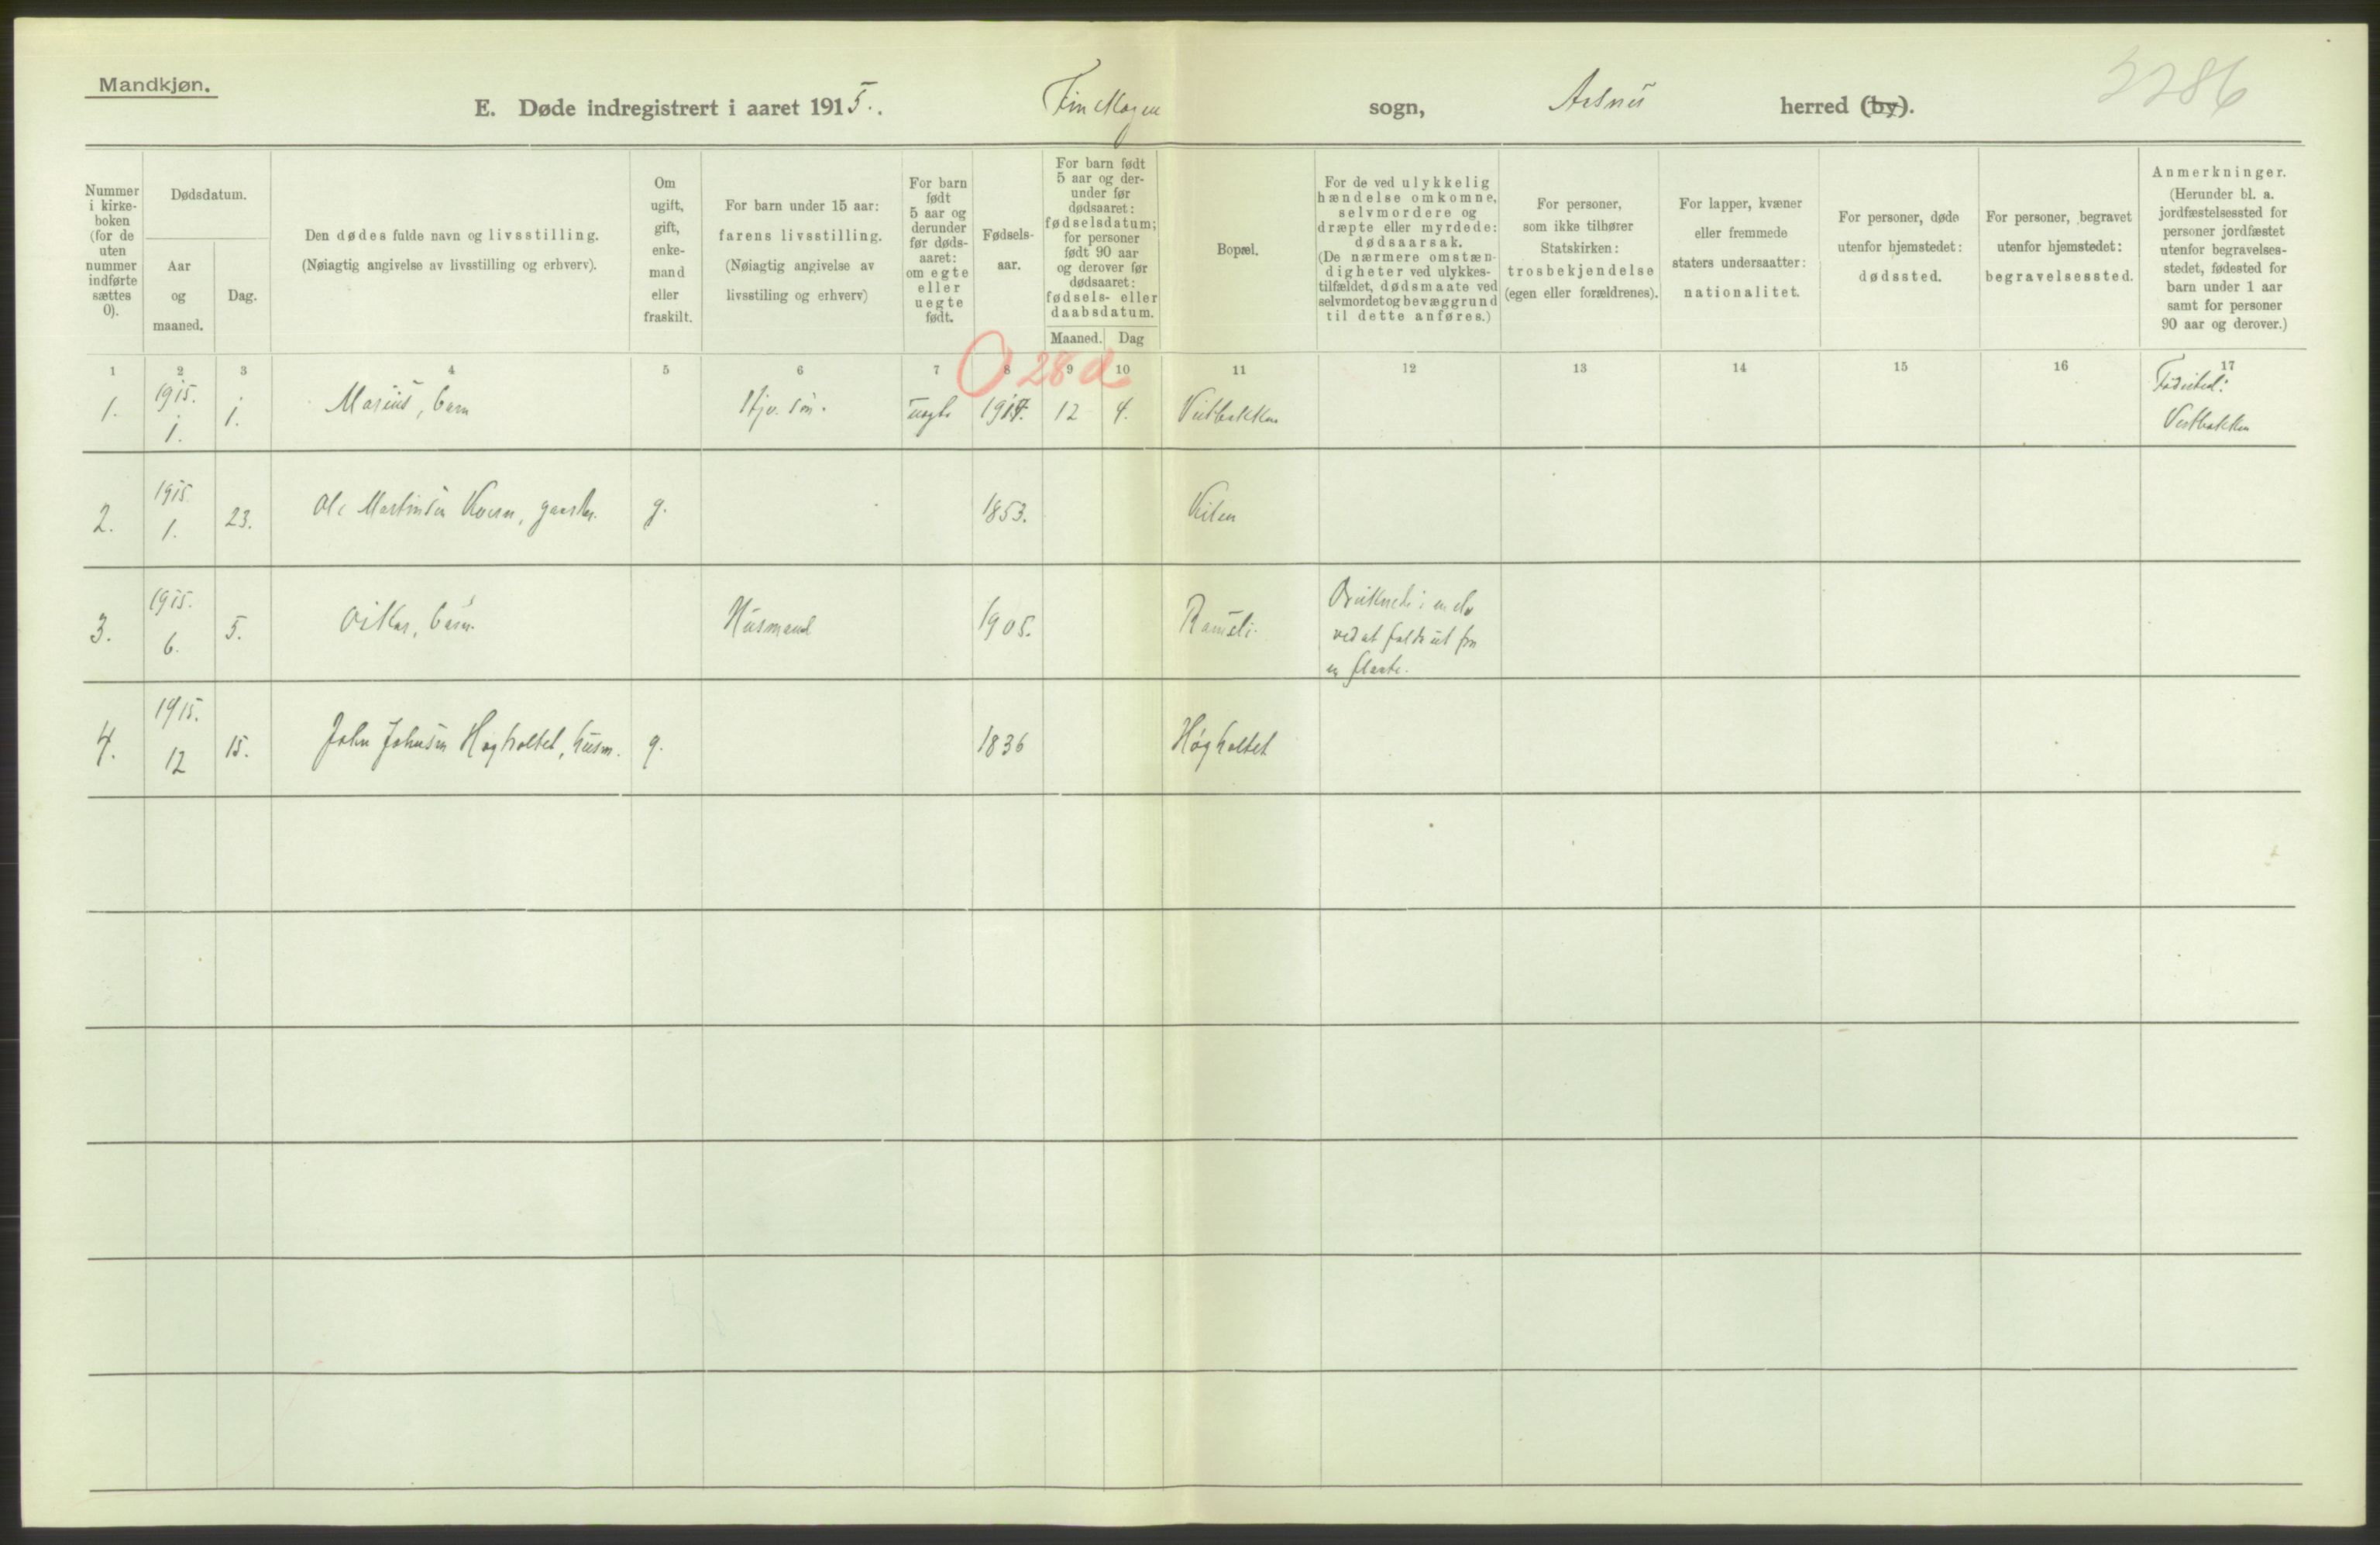 Mandkjøn.
E. Døde indregistrert i aaret 1915. Finskogen sogn, Aasnes herred (by).
2286
Nummer i kirke-boken (for de uten nummer indførte sættes 0).
Dødsdatum.
Aar og maaned.
Dag.
Den dødes fulde navn og livsstilling.
(Nøiagtig angivelse av livsstilling og erhverv).
Om ugift, gift, enke-mand eller fraskilt.
For barn under 15 aar: farens livsstilling.
(Nøiagtig angivelse av livsstiling og erhverv)
For barn født 5 aar og derunder før døds-aaret: om egte eller uegte født.
Fødsels-aar.
For barn født 5 aar og der-under før dødsaaret: fødselsdatum; for personer født 90 aar og derover før dødsaaret: fødsels- eller daabsdatum.
Maaned.
Dag
Bopæl.
For de ved ulykkelig hændelse omkomne, selvmordere og dræpte eller myrdede: dødsaarsak.
(De nærmere omstæn-digheter ved ulykkes-tilfældet, dødsmaate ved selvmordet og bevæggrund til dette anføres.)
For personer, som ikke tilhører Statskirken: trosbekjendelse (egen eller forældrenes).
For lapper, kvæner eller fremmede staters undersaatter: nationalitet.
For personer, døde utenfor hjemstedet: dødssted.
For personer, begravet utenfor hjemstedet: begravelsessted.
Anmerkninger.
(Herunder bl. a. jordfæstelsessted for personer jordfæstet utenfor begravelses-stedet, fødested for barn under 1 aar samt for personer 90 aar og derover.)
1 2 3 4 5 6 7 8 9 10 11 12 13 14 15 16 17
0 28 d
1. 1915. 1. 1. Marius, barn uegte 1914. 12 4. Vestbakken Fødested: Vestbakken
2. 1915 1. 23. Ole Martinsen Kvern, gaardbr. g. 1853. Kilen
3. 1915. 6. 5. Oskar, barn. Husmand 1905. Ramsli. Druknede i en elv
ved at falde ut fra
en flaate.
4. 1915. 12 15. John Johnsen Høgholtet, husm. g. 1836 Høgholtet